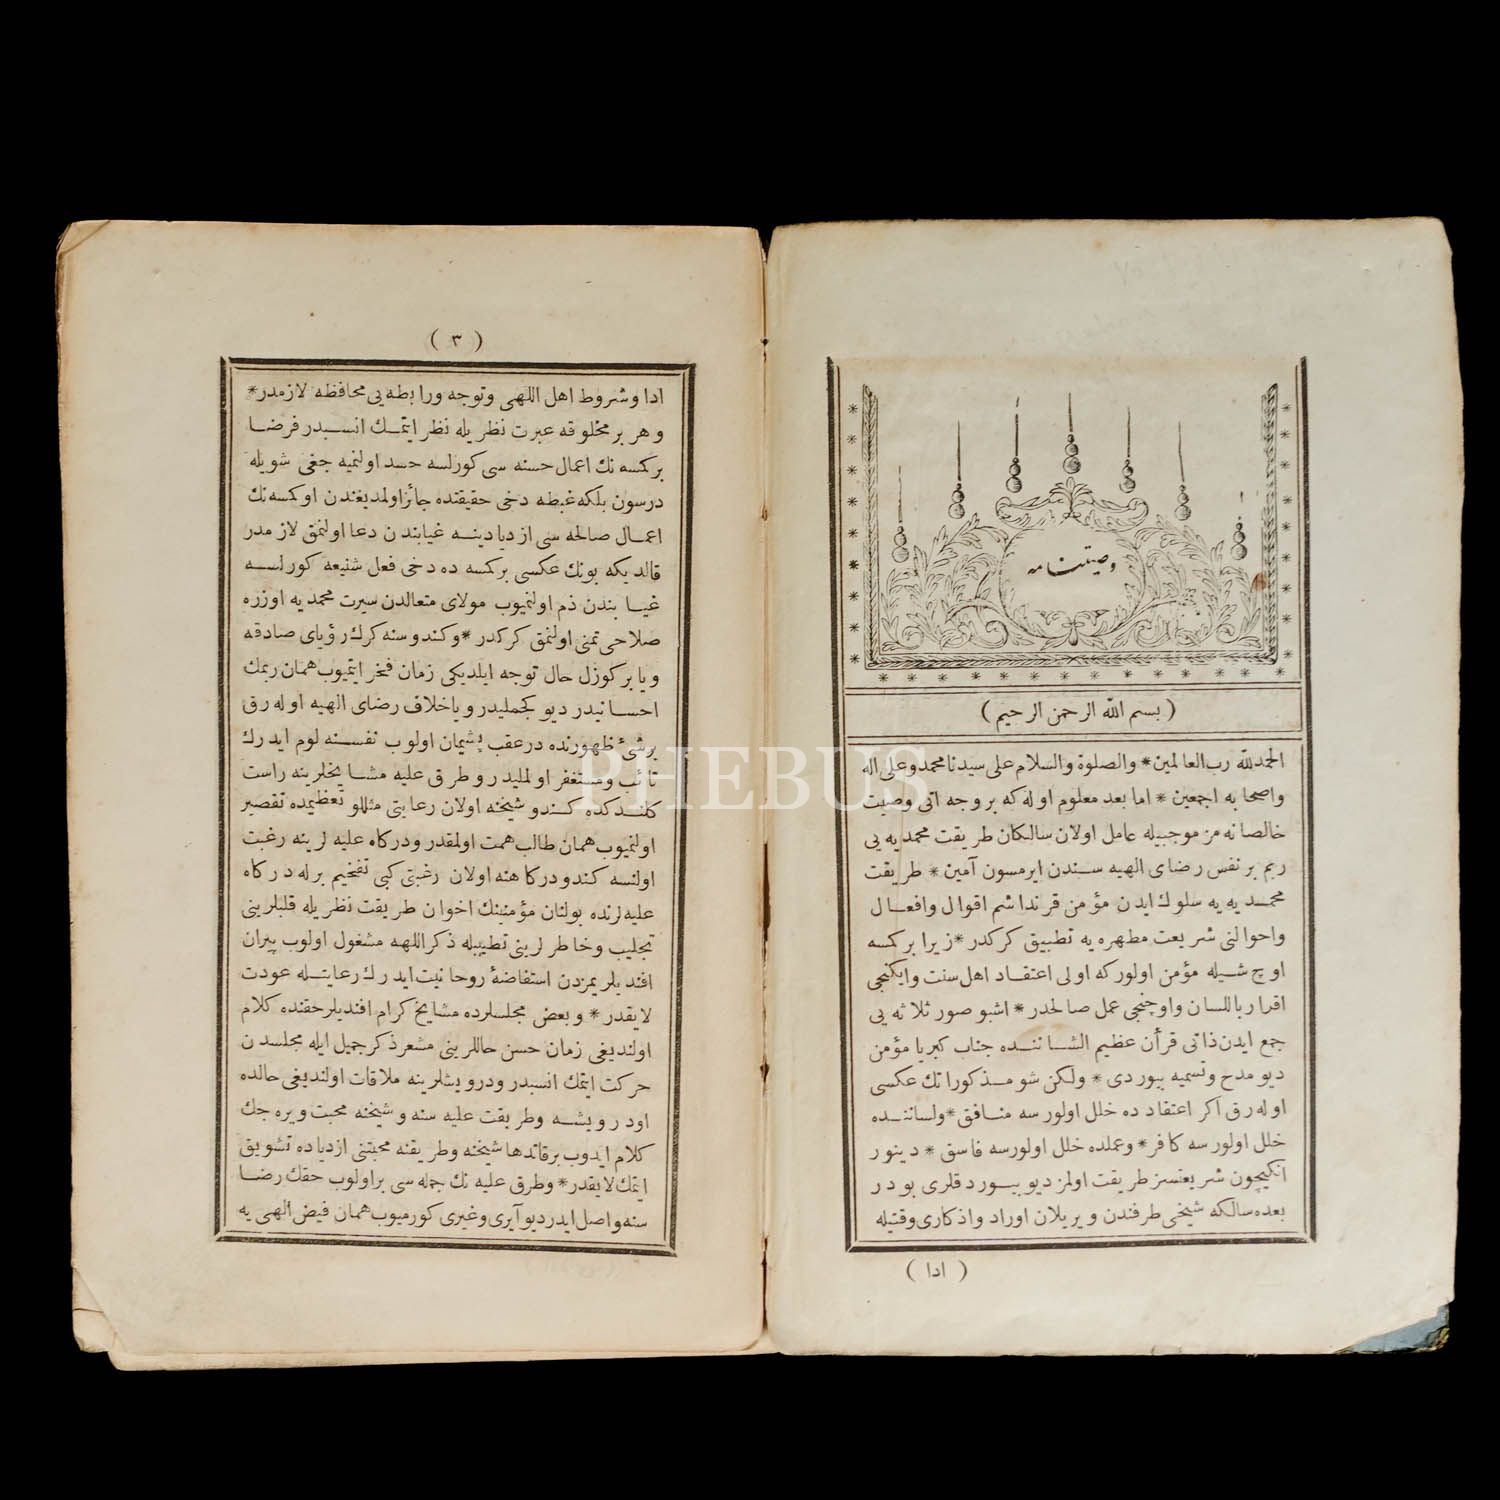 وصيتنامه
( بسم الله الرحمن الرحيم )
الحمدلله رب العالمين * والصلوة والسلام على سيدنا محمد وعلى اله
واصحابه اجمعين * اما بعد معلوم اوله كه بر وجه اتى وصيت
خالصانه مز موجبيله عامل اولان سالكان طريقت محمديه يى
ربم بر نفس رضاى الهيه سندن ايرمسون آمين * طريقت
محمديه يه سلوك ايدن مؤمن قرنداشم اقوال وافعال
واحوالنى شريعت مطهره يه تطبيق كركدر * زيرا بركسه
اوچ شيله مؤمن اولور كه اولى اعتقاد اهل سنت وايكنجى
اقرار باللسان واوچنجى عمل صالحدر * اشبو صور ثلاثه يى
جمع ايدن ذاتى قرأن عظيم الشاننده جناب كبريا مؤمن
ديو مدح وتسميه بيوردى * ولكن شو مذكوراتك عكسى
اوله رق اكر اعتقاد ده خلل اولورسه منافق * ولساننده
خلل اولورسه كافر * وعملده خلل اولورسه فاسق * دينور
انكيچون شريعتسز طريقت اولمز ديو بيوردقلرى بودر
بعده سالكه شيخى طرفندن ويريلان اوراد واذكارى وقتيله
( ادا )
( ٣ )
ادا وشروط اهل اللهى وتوجه ورابطه يى محافظه لازمدر *
وهر بر مخلوقه عبرت نظريله نظر ايتمك انسبدر فرضا
بركسه نك اعمال حسنه سى كورلسه حسد اولنميه جغى شويله
درسون بلكه غبطه دخى حقيقتده جائز اولمديغندن اوكسه نك
اعمال صالحه سى ازديادينه غيابندن دعا اولنمق لازمدر
قالديكه بونك عكسى بركسه ده دخى فعل شنيعه كورلسه
غيابندن ذم اولنميوب مولاى متعالدن سيرت محمديه اوزره
صلاحى تمنى اولنمق كركدر * وكندوسنه كرك رؤياى صادقه
ويا بر كوزل حال توجه ايلديكى زمان فخر ايتميوب همان ربمك
احسانيدر ديو كچمليدر ويا خلاف رضاى الهيه اوله رق
برشئ ظهورنده درعقب پشيمان اولوب نفسنه لوم ايدرك
تائب ومستغفر اولمليدر وطرق عليه مشايخلرينه راست
كلندكده كندو شيخنه اولان رعايتى مثللو تعظيمده تقصير
اولنميوب همان طالب همت اولمقدر ودركاه عليه لرينه رغبت
اولنسه كندو دركاهنه اولان رغبتى كبى تفخيم برله دركاه
عليه لرنده بولنان مؤمننك اخوان طريقت نظريله قلبلرينى
تجليب وخاطرلرينى تطييبله ذكر اللهه مشغول اولوب پيران
افنديلريمزدن استفاضهٔ روحانيت ايدرك رعايتله عودت
لايقدر * وبعض مجلسلرده مشايخ كرام افنديلر حقنده كلام
اولنديغى زمان حسن حاللرينى مشعر ذكر جميل ايله مجلسدن
حركت ايتمك انسبدر ودرويشلرينه ملاقات اولنديغى حالده
اودرويشه وطريقت عليه سنه وشيخنه محبت ويره جك
كلام ايدوب برقاتدها شيخنه وطريقنه محبتنى ازدياده تشويق
ايتمك لايقدر * وطرق عليه نك جمله سى براولوب حقك رضا
سنه واصل ايدر ديو آيرى وغيرى كورميوب همان فيض الهى يه
PHEBUS